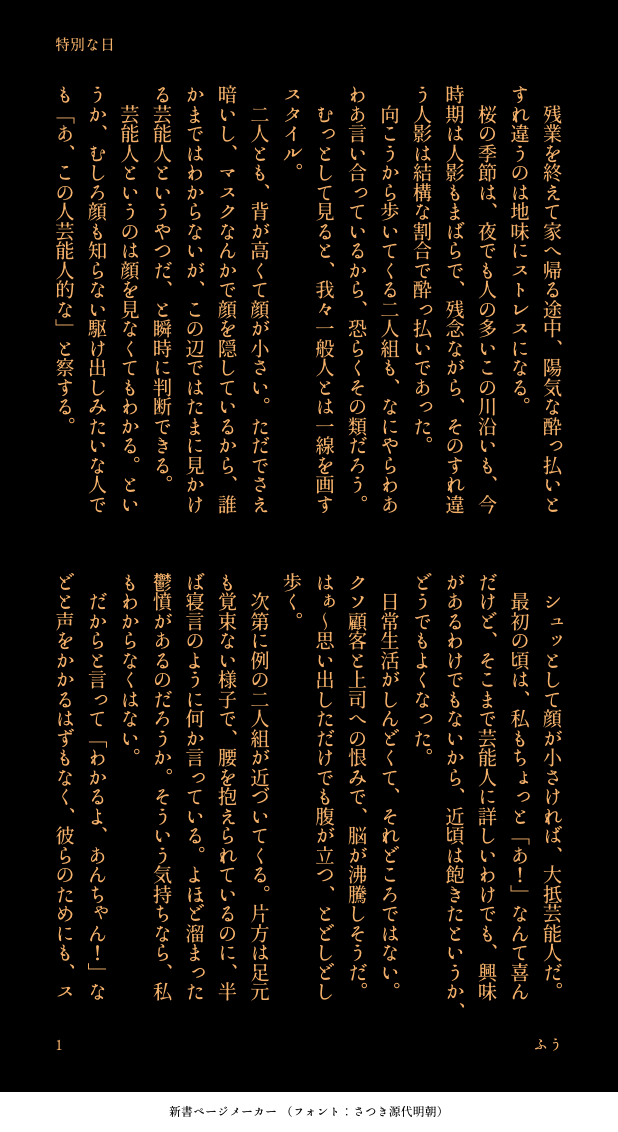 特別な日
　残業を終えて家へ帰る途中、陽気な酔っ払いと
すれ違うのは地味にストレスになる。
　桜の季節は、夜でも人の多いこの川沿いも、今
時期は人影もまばらで、残念ながら、そのすれ違
う人影は結構な割合で酔っ払いであった。
　向こうから歩いてくる二人組も、なにやらわあ
わあ言い合っているから、恐らくその類だろう。
　むっとして見ると、我々一般人とは一線を画す
スタイル。
　二人とも、背が高くて顔が小さい。ただでさえ
暗いし、マスクなんかで顔を隠しているから、誰
かまではわからないが、この辺ではたまに見かけ
る芸能人というやつだ、と瞬時に判断できる。
　芸能人というのは顔を見なくてもわかる。とい
うか、むしろ顔も知らない駆け出しみたいな人で
も「あ、この人芸能人的な」と察する。
　シュッとして顔が小さければ、大抵芸能人だ。
　最初の頃は、私もちょっと「あ！」なんて喜ん
だけど、そこまで芸能人に詳しいわけでも、興味
があるわけでもないから、近頃は飽きたというか、
どうでもよくなった。
　日常生活がしんどくて、それどころではない。
クソ顧客と上司への恨みで、脳が沸騰しそうだ。
はぁ～思い出しただけでも腹が立つ、とどしどし
歩く。
　次第に例の二人組が近づいてくる。片方は足元
も覚束ない様子で、腰を抱えられているのに、半
ば寝言のように何か言っている。よほど溜まった
鬱憤があるのだろうか。そういう気持ちなら、私
もわからなくはない。
　だからと言って「わかるよ、あんちゃん！」な
どと声をかかるはずもなく、彼らのためにも、ス
ふう
1
新書ページメーカー （フォント：さつき源代明朝）